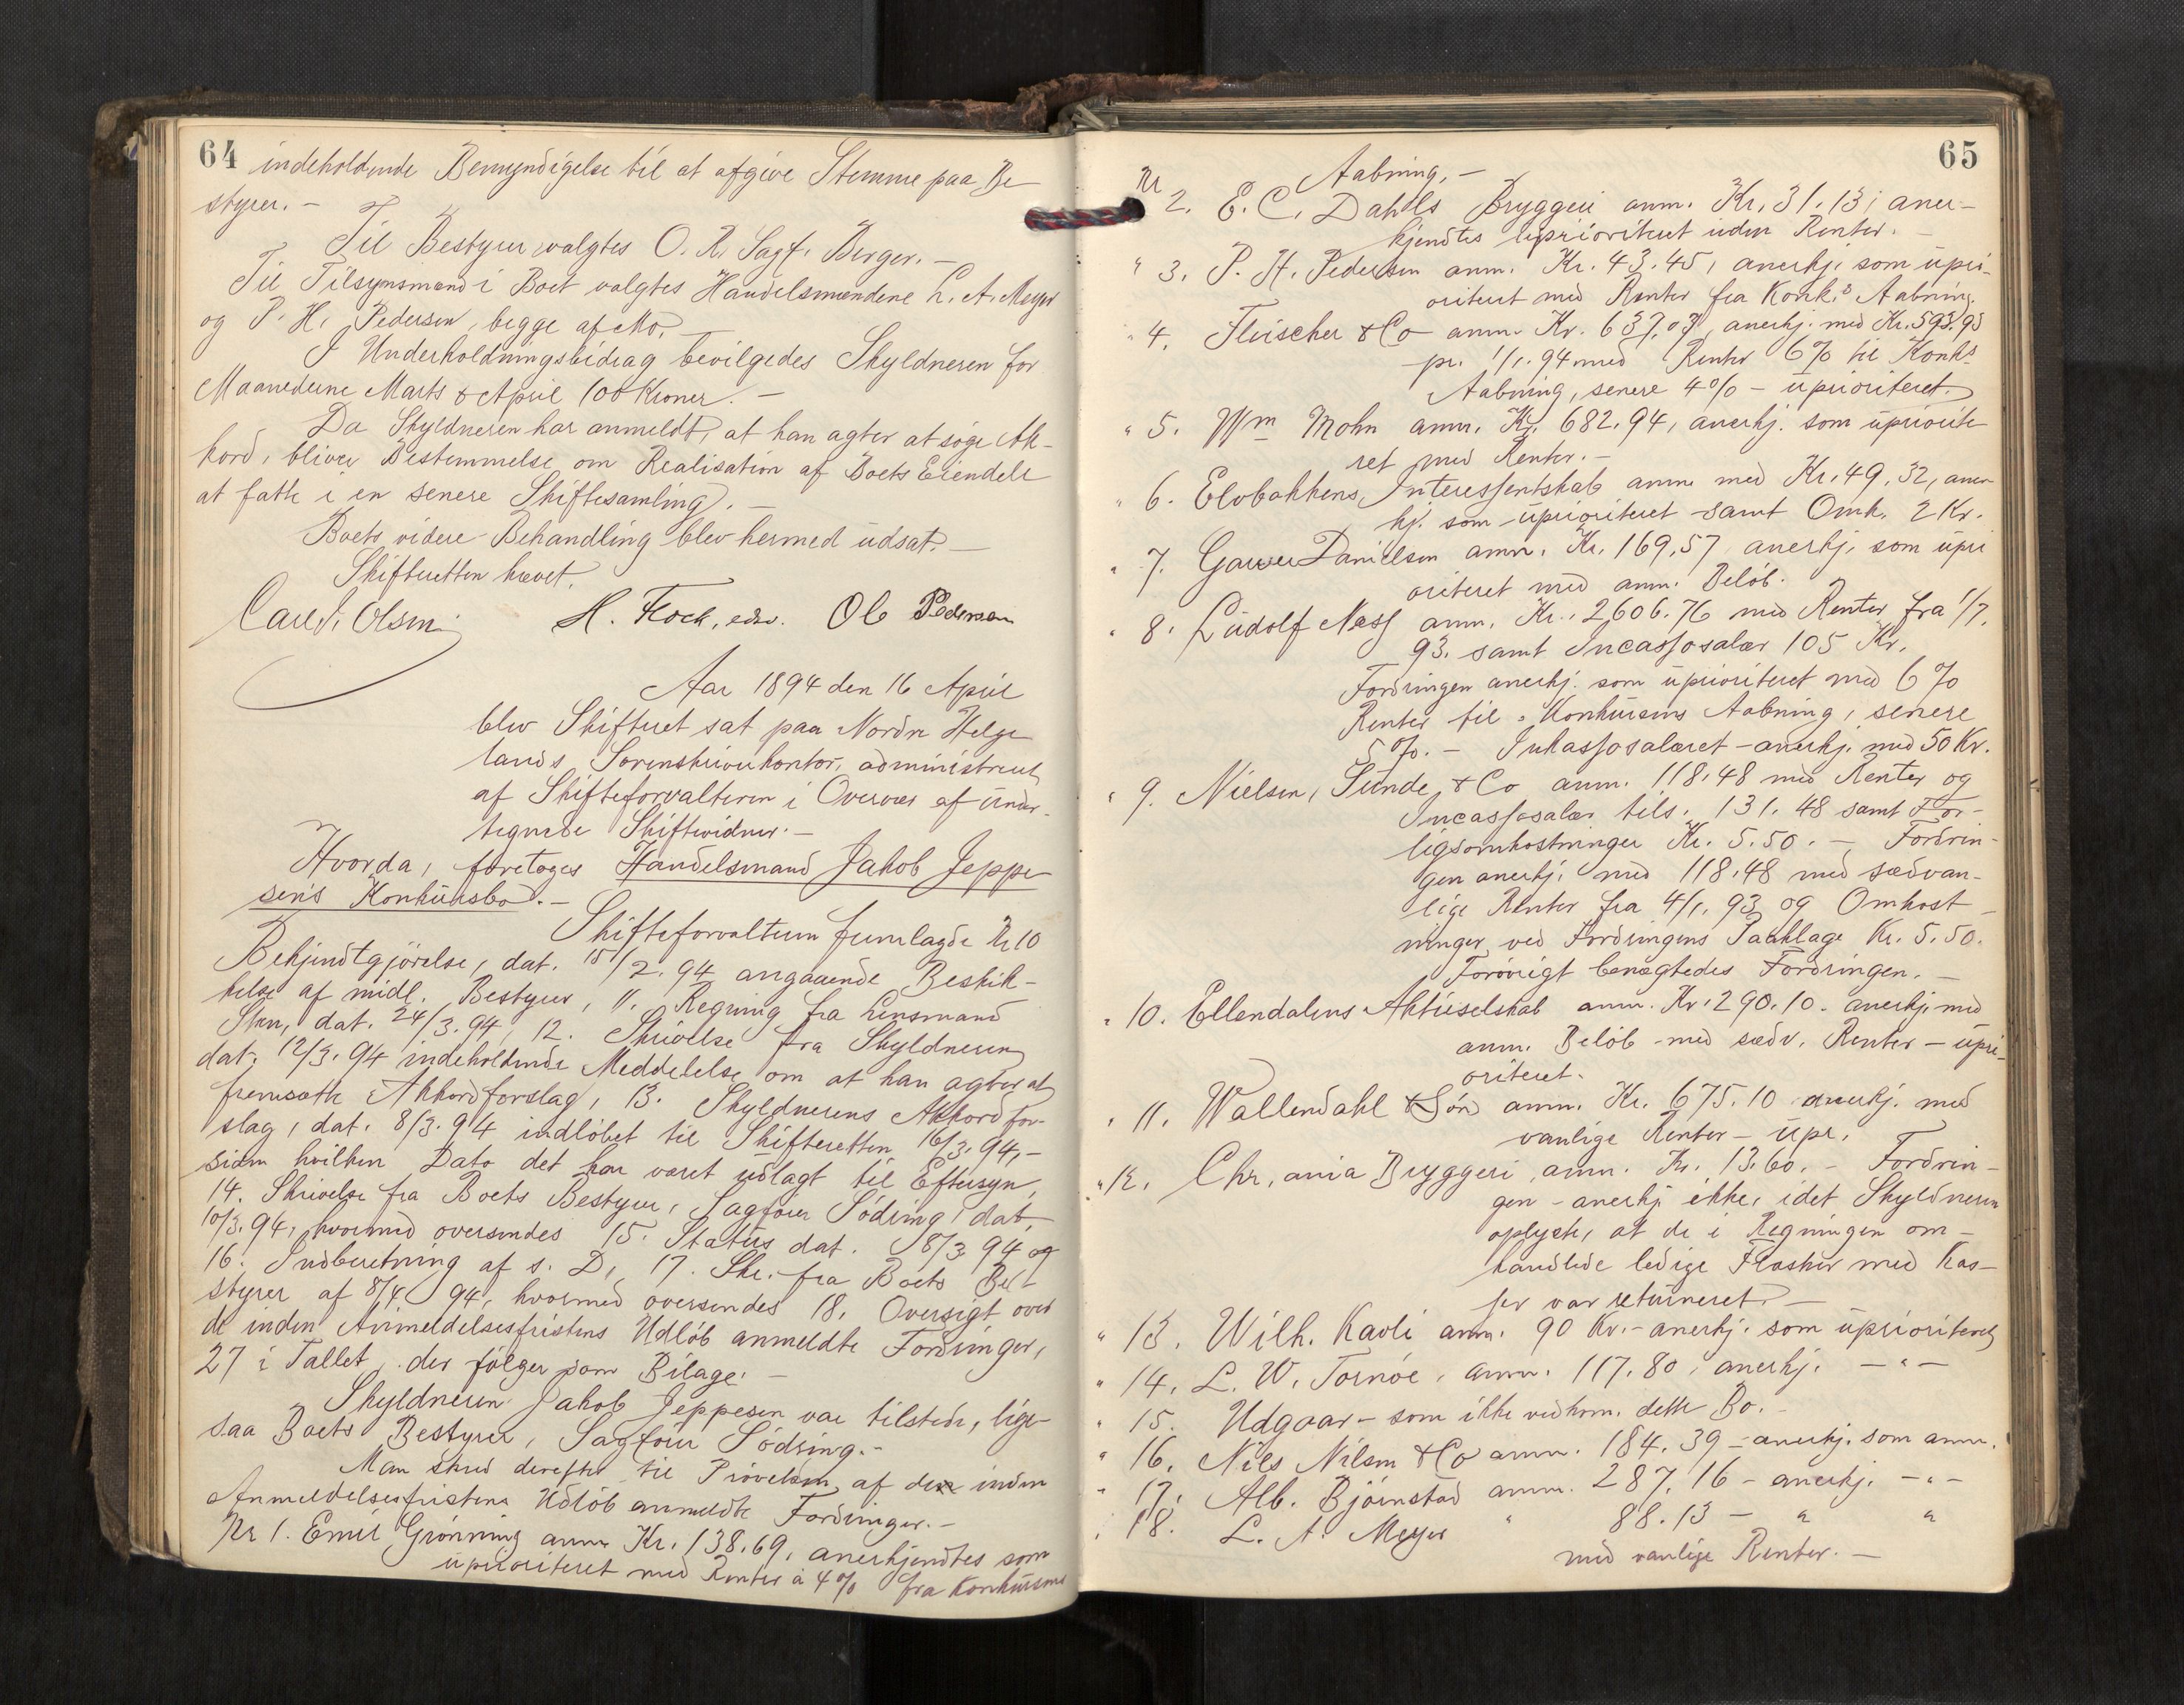 64
indeholdende Bemyndigelse til at afgive Stemme paa Be-
styrer. -
Til Bestyrer valgtes O. R. Sagf. Berger. -
Til Tilsynsmænd i Boet valgtes Handelsmændene L. A. Meyer
og P. H. Pedersen, begge af Mo. -
I Underholdningsbidrag bevilgedes Skyldneren for
Maanederne Marts & April 100 Kroner. -
Da Skyldneren har anmeldt, at han agter at søge Ak-
kord, bliver Bestemmelse om Realisation af Boets Eiendele
at fatte i en senere Skiftesamling. -
Boets videre Behandling blev hermed udsat. -
Skifteretten hævet.
Carl J. Olsen H. Flock, edsv. Ole Pedersen
Aar 1894 den 16 April
blev Skifteret sat paa Nordre Helge-
lands Sorenskriverkontor, administreret
af Skifteforvalteren i Overvær af under-
tegnede Skiftevidner. -
Hvorda, foretoges Handelsmand Jakob Jeppe-
sens Konkursbo. -
Skifteforvalteren fremlagde Nr 10
Bekjendtgjörelse, dat. 15/2. 94 angaaende Beskik-
kelse af midl. Bestyrer, 11. Regning fra Lensmand
Sten, dat. 24/3. 94, 12. Skrivelse fra Skyldneren
dat. 12/3. 94 indeholdende Meddelelse om at han agter at
fremsætte Akkordforslag, 13. Skyldnerens Akkordfor-
slag, dat. 8/3. 94 indløbet til Skifteretten 16/3. 94, -
siden hvilken Dato det har været udlagt til Eftersyn,
14. Skrivelse fra Boets Bestyrer, Sagfører Södring, dat.
10/3. 94, hvormed oversendes 15. Status dat. 8/3 94 og
16. Indberetning af s. D., 17. Skr. fra Boets Be-
styrer af 8/4 94, hvormed oversendes 18. Oversigt over
de inden Anmeldelsesfristens Udløb anmeldte Fordringer,
27 i Tallet, der følger som Bilage. -
Skyldneren Jakob Jeppesen var tilstede, lige-
saa Boets Bestyrer, Sagfører Södring. -
Man skred derefter til Prøvelsen af de inden
Anmeldelsesfristens Udløb anmeldte Fordringer. -
Nr 1. Emil Grönning anm. Kr. 138.69, anerkjendtes som
uprioriteret med Renter à 4% fra Konkursens
65
Aabning. -
Nr 2. E. C. Dahls Bryggeri anm. Kr. 31.13; aner-
kjendtes uprioriteret uden Renter. -
" 3. P. H. Pedersen anm. Kr. 43.45, anerkj. som upri-
oriteret med Renter fra Konk.s Aabning.
" 4. Fleischer & Co anm. Kr. 637.07, anerkj. med Kr. 593.93
pr. 1/1. 94 med Renter 6% til Konks
Aabning, senere 4% - uprioriteret.
" 5. Wm Mohn anm. Kr. 682.94, anerkj. som upriorite-
ret med Renter. -
" 6. Elvbakkens Interessentskab anm. med Kr. 49.32, aner-
kj. som uprioriteret samt Omk. 2 Kr.
" 7. Garver Danielsen anm. Kr. 169.57 anerkj. som upri
oriteret med anm. Beløb.
" 8. Ludolf Næss anm. Kr. 2,606.76 med Renter fra 1/7.
93. samt Incassosalær 105 Kr.
Fordringen anerkj. som uprioriteret med 6%
Renter til Konkursens Aabning, senere
5%. - Inkassosalæret - anerkj. med 50 Kr.
" 9. Nielsen, Sunde & Co anm. 118.48 med Renter og
Incassosalær tils. 131.48 samt For-
ligsomkostninger Kr. 5.50. - Fordrin-
gen anerkj. med 118.48 med sædvan-
lige Renter fra 4/1. 93 og Omkost-
ninger ved Fordringens Paaklage Kr. 5.50.
Forøvrigt benægtedes Fordringen. -
" 10. Ellendalens Aktieselskab anm. Kr. 290.10. anerkj. med
anm. Beløb - med sædv. Renter - upri-
oriteret.
" 11. Wallendahl & Sön anm. Kr. 675.10 anerkj. med
vanlige Renter - upr.
" 12. Chr.ania Bryggeri anm. Kr. 13.60. - Fordrin-
gen - anerkj. ikke, idet Skyldneren
oplyste, at de i Regningen om-
handlede ledige Flasker med Kas-
ser var returneret. -
" 13. Wilh. Kavli anm. 90 Kr. - anerkj. som uprioriteret
" 14. L. W. Tornöe, anm. 117.80, anerkj. - " -
" 15. Udgaar - som ikke vedkom. dette Bo. -
" 16. Nils Nilsen & Co anm. 184.39 - anerkj. som anm.
" 17. Alb. Björnstad anm. 287.16 - anerkj. - " -
" 18. L. A. Meyer " 88.13 - " "
med vanlige Renter. -